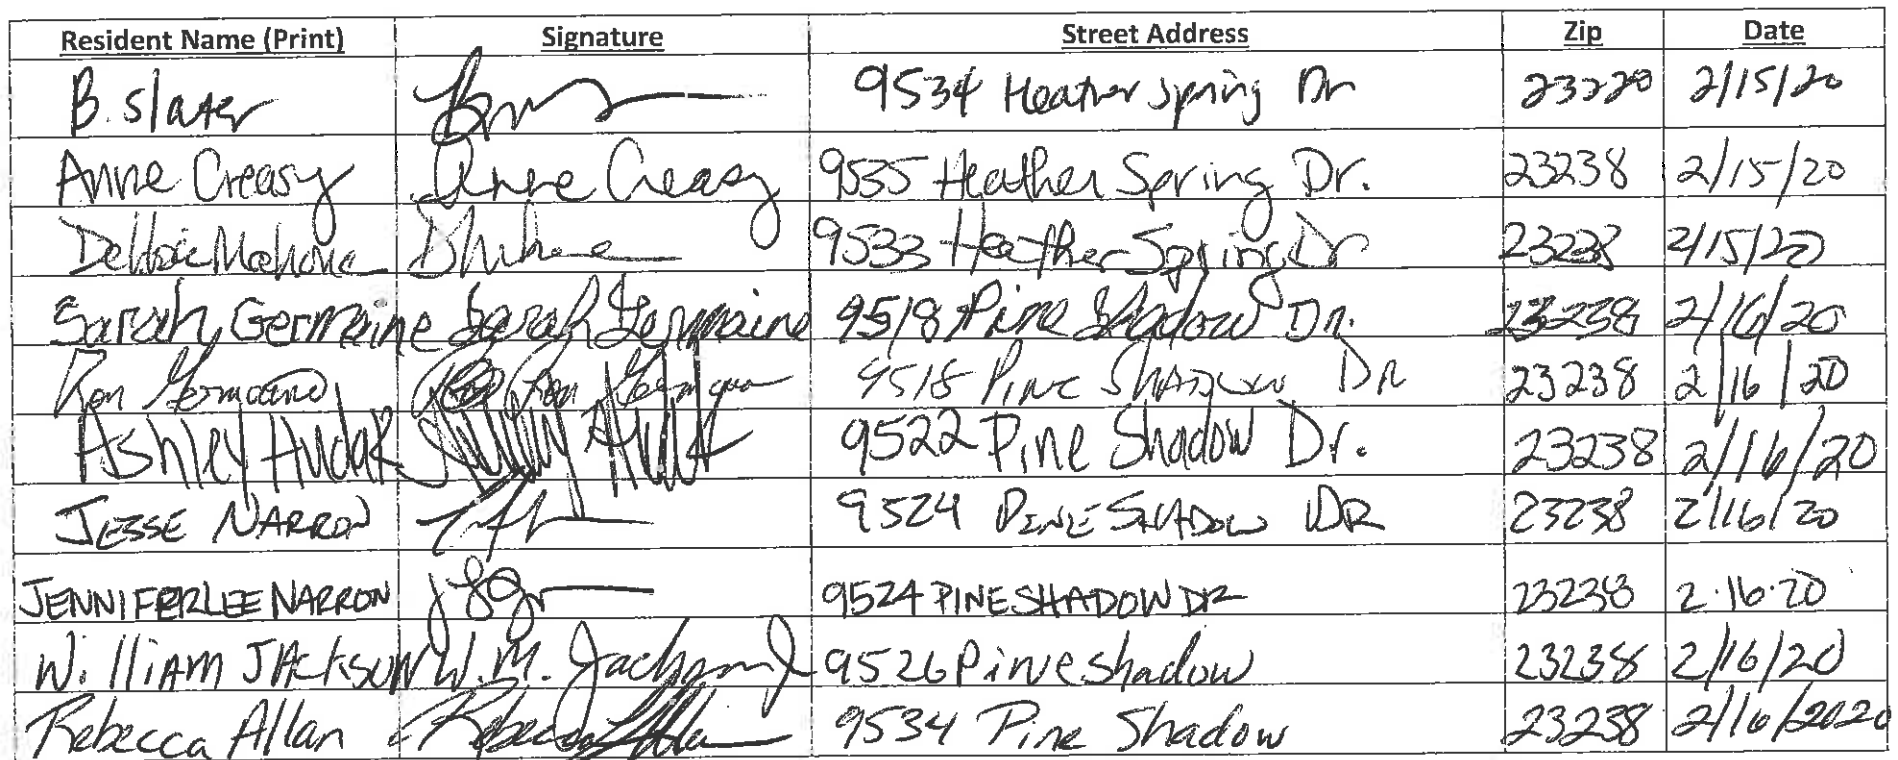 Resident Name (Print) Signature Street Address Zip Date
B. Slater 9534 Heather Spring Dr 23220 2/15/20
Anne Creasy Anne Creasy 9535 Heather Spring Dr. 23238 2/15/20
Debbie Mahone 9533 Heather Spring Dr 23238 2/15/20
Sarah Germaine Sarah Germaine 9518 Pine Shadow Dr. 23238 2/16/20
Ron Germaine Ron Germaine 9518 Pine Shadow DR 23238 2/16/20
Ashley Hudak 9522 Pine Shadow Dr. 23238 2/16/20
JESSE NARRON 9524 PINE SHADOW DR 23238 2/16/20
JENNIFERLEE NARRON 9524 PINE SHADOW DR 23238 2.16.20
William JACKSON W.M. Jackson J 9526 Pine shadow 23238 2/16/20
Rebecca Allan Rebecca Allan 9534 Pine Shadow 23238 2/16/2020